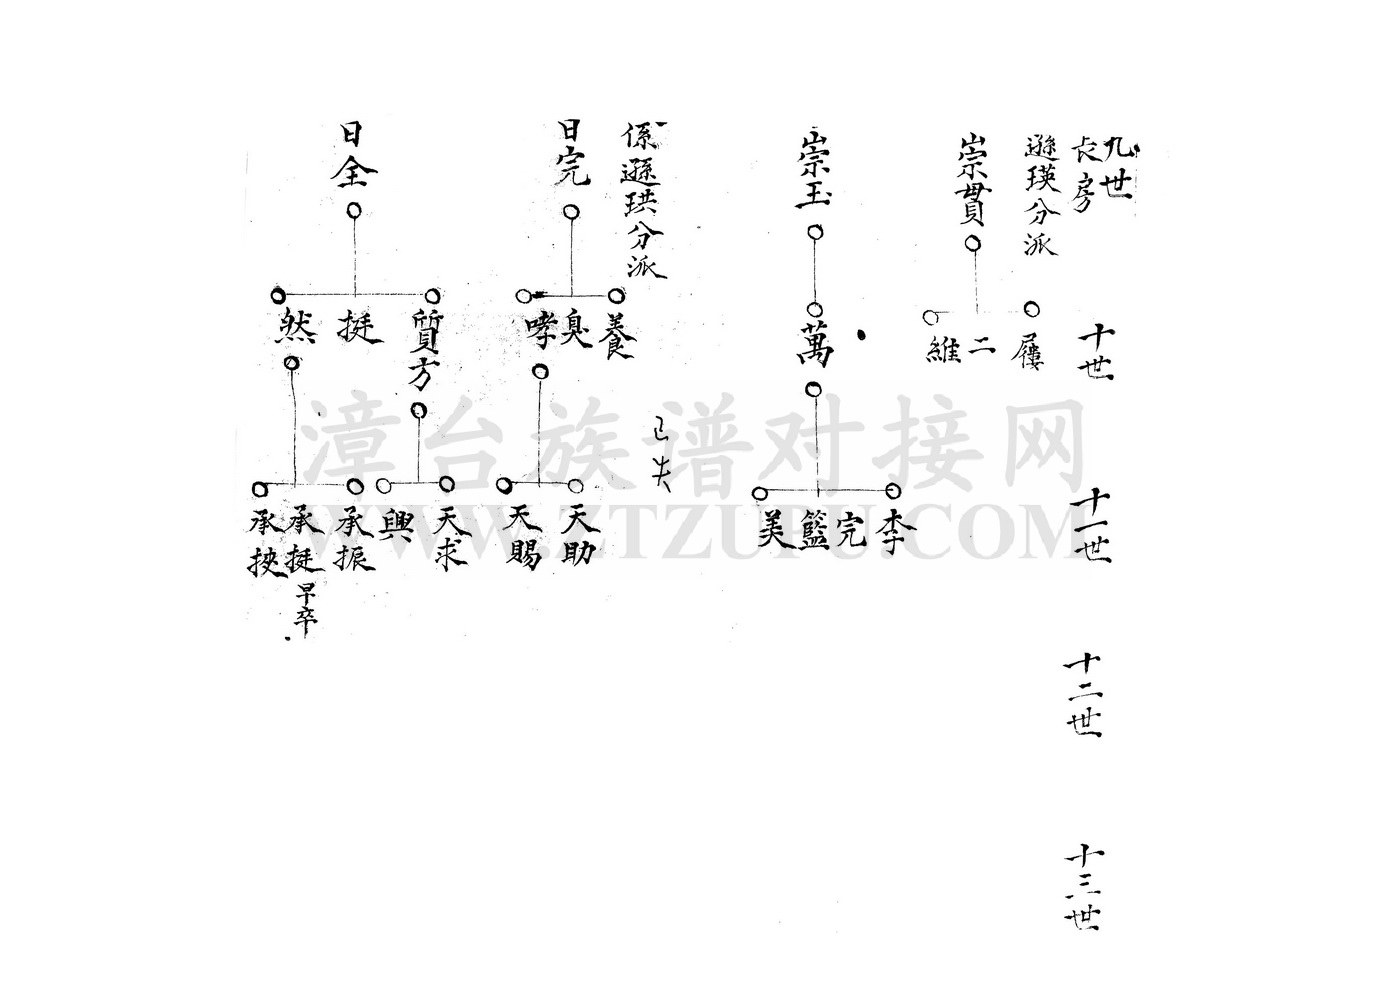 九世
長房
遜瑛分派
崇貫
崇玉
係遜珙分派
日完
日全
十世
屨
二
維
萬
養
臭
哮
質方
挺
然
已失
十一世
李
完
籃
美
天助
天賜
天求
興
承振
承挺早卒
承挾
十二世
十三世
漳台族谱对接网
WWW.ZTZUPU.COM